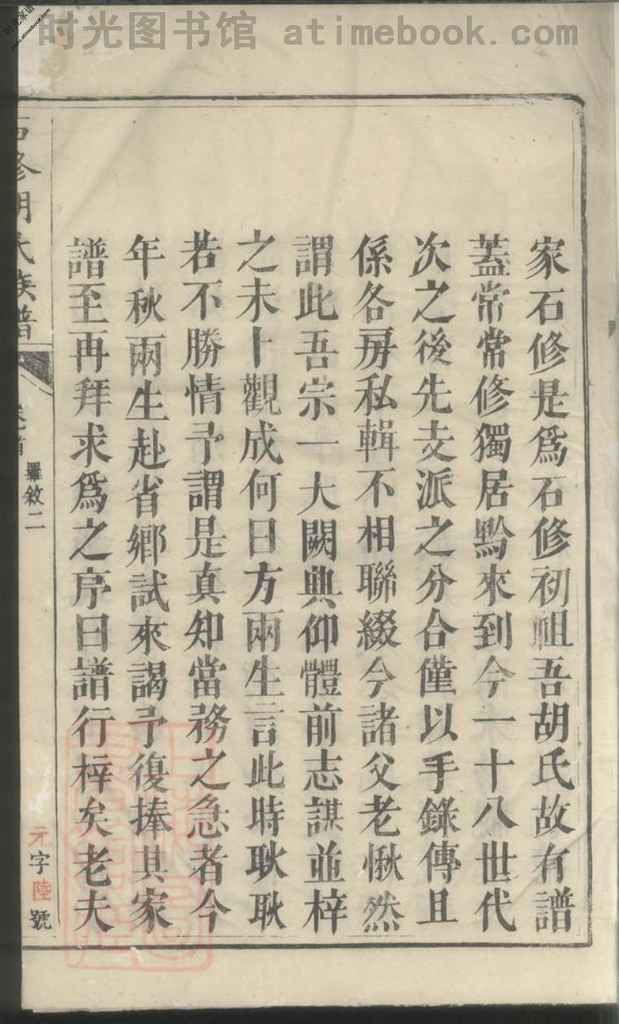 时光图书馆 atimebook.com
家石修是爲石修初祖吾胡氏故有譜
蓋常常修獨居黔來到今一十八世代
次之後先支派之分合僅以手錄傳且
係各房私輯不相聯綴今諸父老愀然
謂此吾宗一大闕典仰體前志謀並梓
之未卜觀成何日方兩生言此時耿耿
若不勝情予謂是真知當務之急者今
年秋兩生赴省鄉試來謁予復捧其家
譜至再拜求爲之序曰譜行梓矣老夫
石修胡氏族譜
卷首
羅敘二
元字陸號